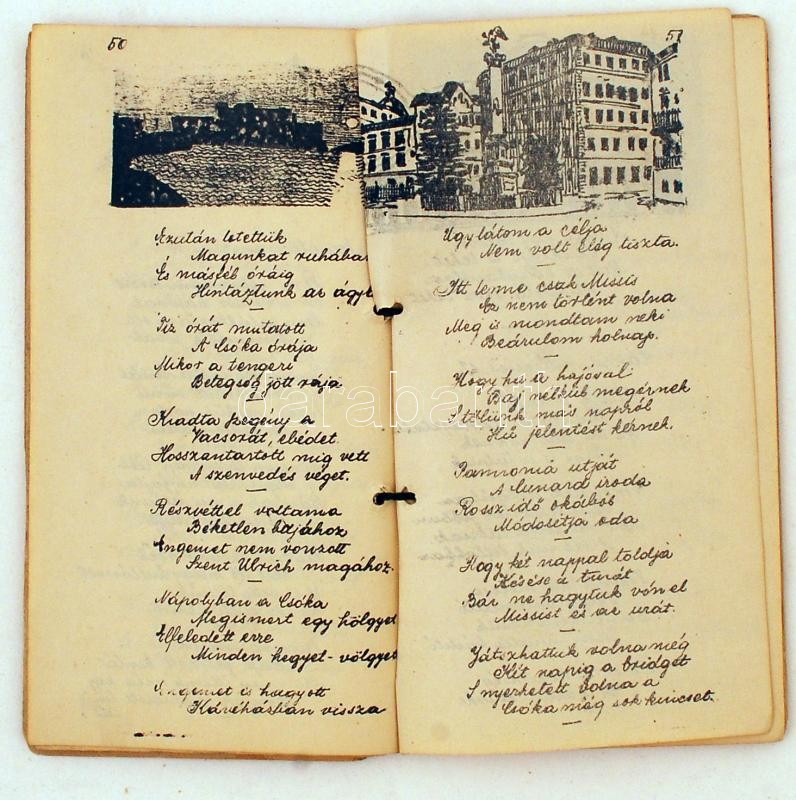 50
Ezután tetettük
Magunkat ruhában
És másfél óráig
Hintáztunk az ágyb
Tiz órát mutatott
A Csóka órája
Mikor a tengeri
Betegség jött rája
Kiadta szegény a
Vacsorát, ebédet.
Hosszantartott mig vett
A szenvedés véget.
Részvéttel voltam a
Béketlen bájához
Engemet nem vonzott
Szent Ulrich magához.
Nápolyban a Csóka
Megismert egy hölgyet
Elfeledett erre
Minden hegyet-völgyet
Engemet is hagyott
Kávéházban vissza
51
Ugy látom a célja
Nem volt elég tiszta.
Itt lenne csak Missis
Ez nem történt volna
Meg is mondtam neki
Beárulom holnap.
Hogy ha a hajóval
Baj nélkül megérnek
S tőlünk más napról
Hű jelentést kérnek.
Pannonia utját
A Cunard iroda
Rossz idő okából
Módositja oda
Hogy két nappal toldja
Késése a turát
Bár ne hagytuk vón el
Missist és az urát.
Játszhattuk volna még
Két napig a bridget
S nyerhetett volna a
Csóka még sok kincset.
darabanth